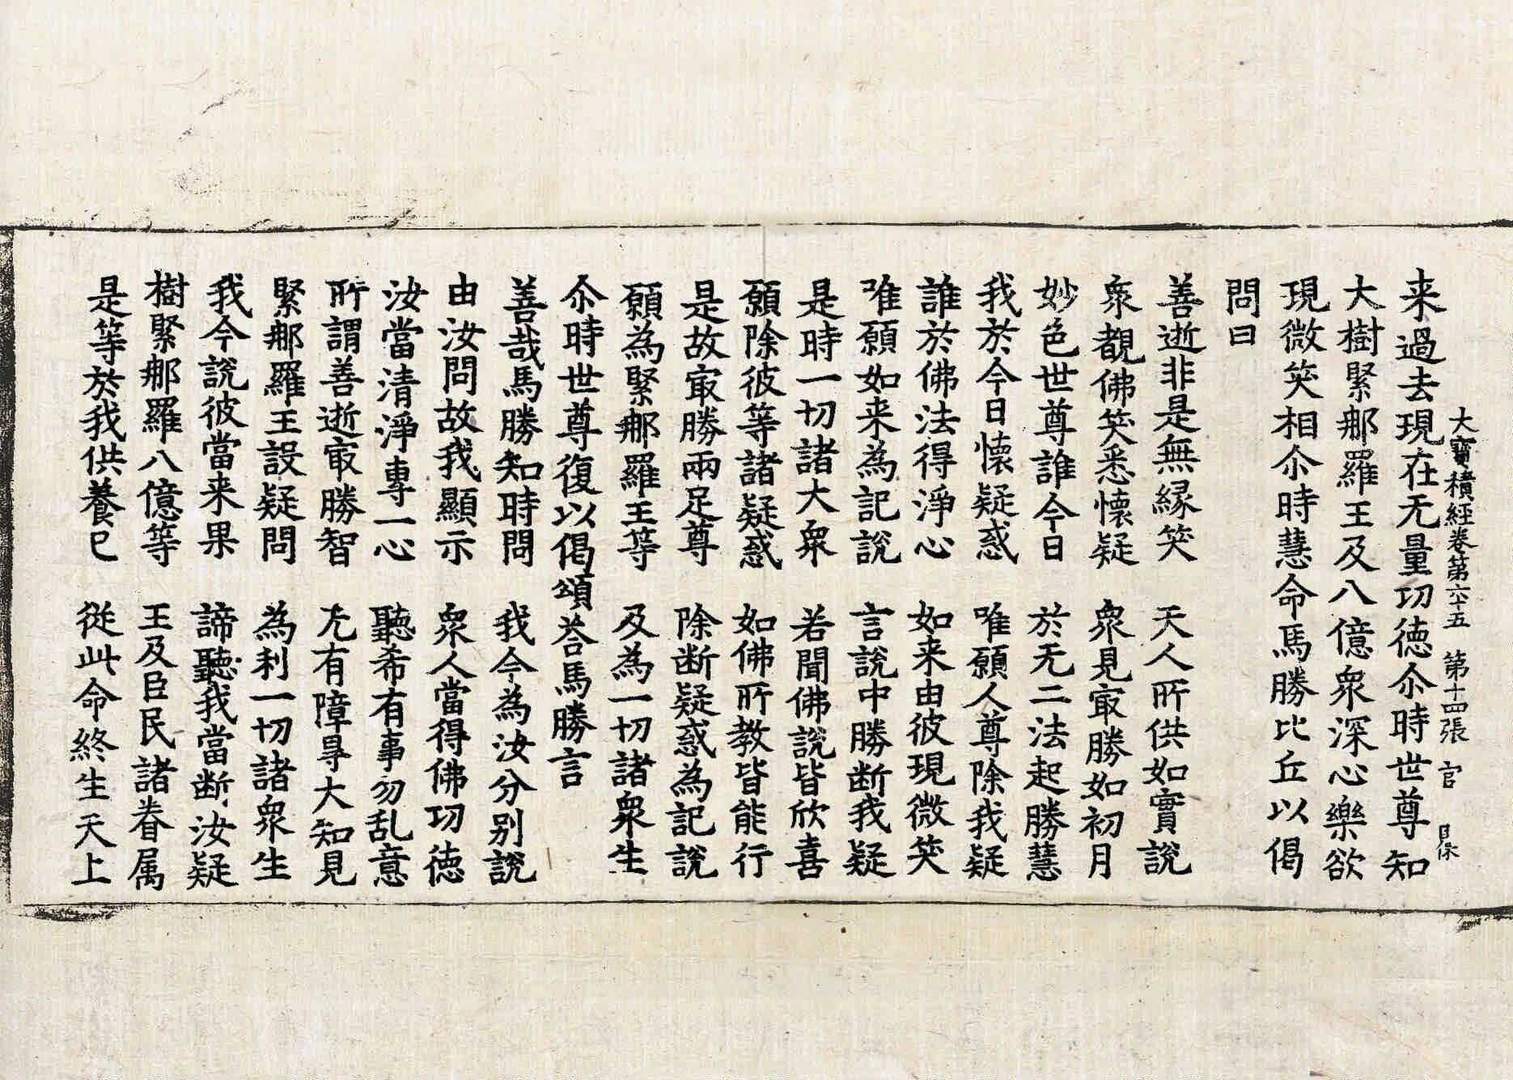 大寶積經卷第六十五　第十四張　官
来過去現在无量功徳尒時世尊知
大樹緊那羅王及八億衆深心樂欲
現微笑相尒時慧命馬勝比丘以偈
問曰
善逝非是無縁笑　天人所供如實說
衆覩佛笑悉懷疑　衆見㝡勝如初月
妙色世尊誰今日　於无二法起勝慧
我於今日懷疑惑　唯願人尊除我疑
誰於佛法得淨心　如来由彼現微笑
唯願如来為記說　言說中勝断我疑
是時一切諸大衆　若聞佛說皆欣喜
願除彼等諸疑惑　如佛所教皆能行
是故㝡勝兩足尊　除断疑惑為記說
願為緊那羅王等　及為一切諸衆生
尒時世尊復以偈頌荅馬勝言
善哉馬勝知時問　我今為汝分別說
由汝問故我顯示　衆人當得佛功徳
汝當清淨專一心　聽希有事勿乱意
所謂善逝㝡勝智　无有障㝵大知見
緊那羅王設疑問　為利一切諸衆生
我今說彼當来果　諦聽我當断汝疑
樹緊那羅八億等　王及臣民諸眷属
是等於我供養已　從此命終生天上